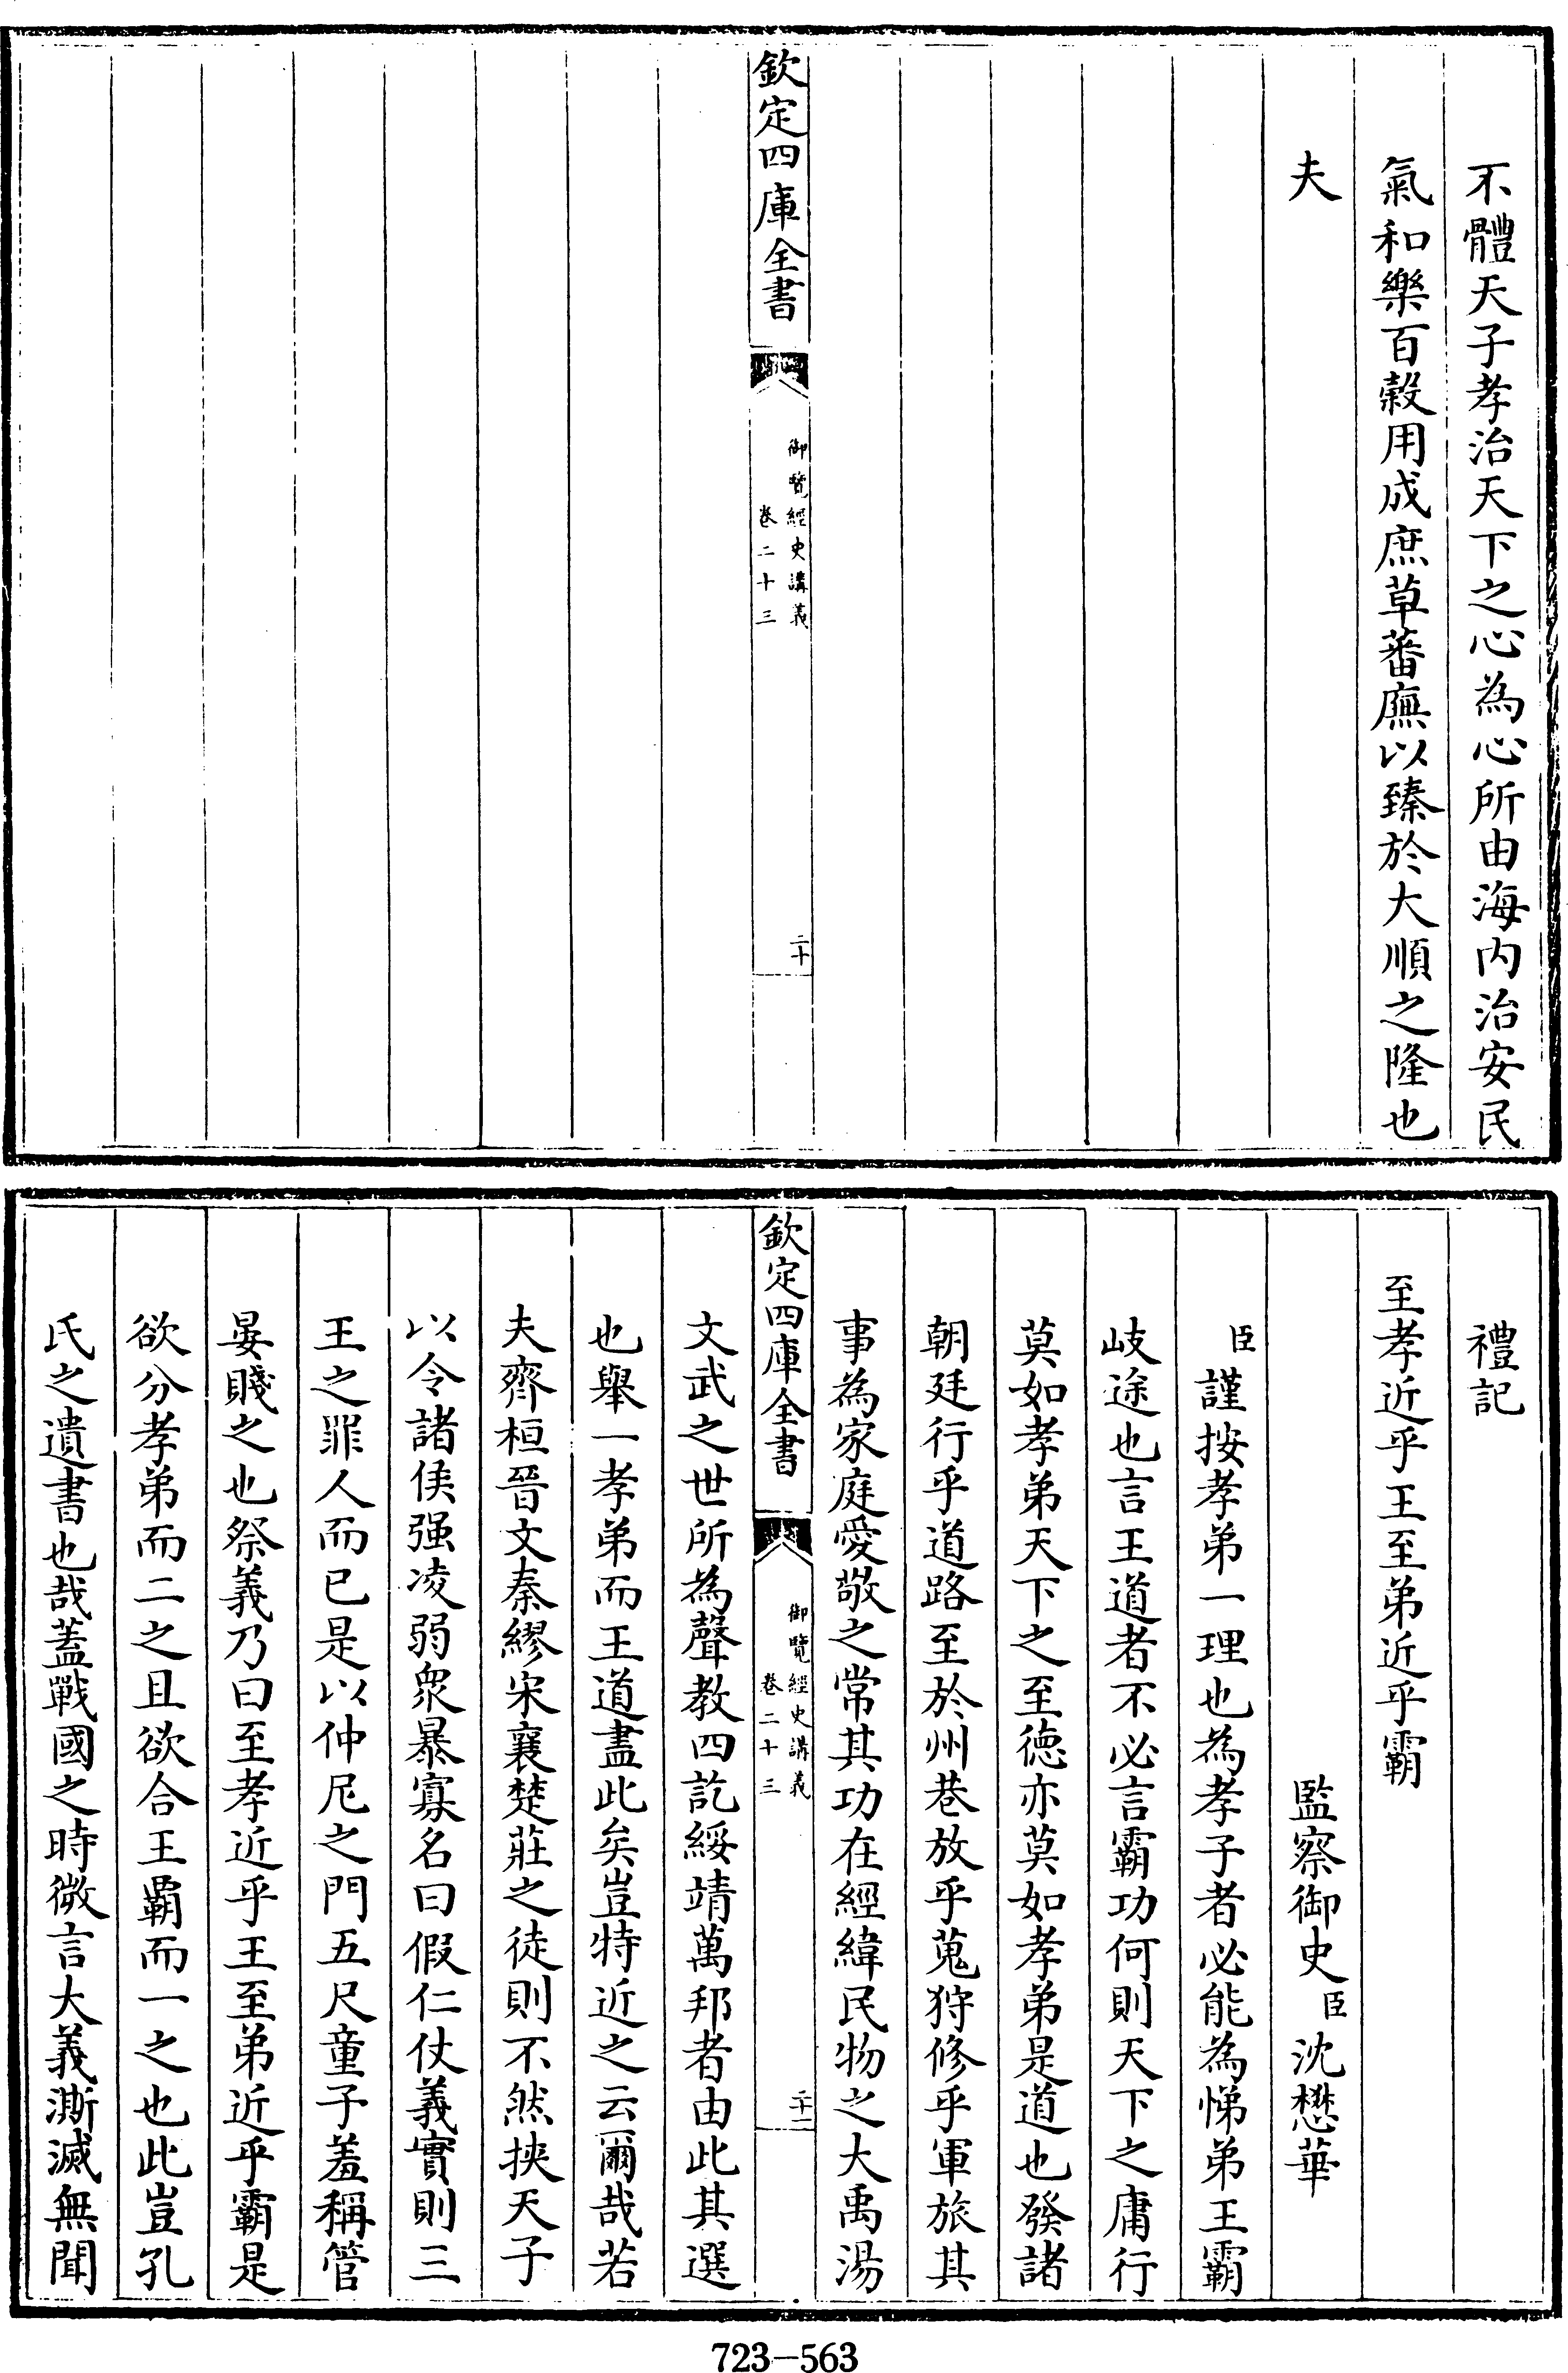 不體天子孝治天下之心為心所由海内治安民
氣和樂百榖用成庶草蕃廡以臻於大順之隆也
夫
欽定四庫全書
御覽經史講義
卷二十三
二十
禮記
至孝近乎王至弟近乎霸
監察御史臣沈懋華
臣謹按孝弟一理也為孝子者必能為悌弟王霸
岐途也言王道者不必言霸功何則天下之庸行
莫如孝弟天下之至德亦莫如孝弟是道也發諸
朝廷行乎道路至於州巷放乎蒐狩修乎軍旅其
事為家庭愛敬之常其功在經緯民物之大禹湯
欽定四庫全書
御覽經史講義
卷二十三
二十一
文武之世所為聲教四訖綏靖萬邦者由此其選
也舉一孝弟而王道盡此矣豈特近之云爾哉若
夫齊桓晉文秦繆宋襄楚莊之徒則不然挾天子
以令諸侯强凌弱衆暴寡名曰假仁仗義實則三
王之罪人而已是以仲尼之門五尺童子羞稱管
晏賤之也祭義乃曰至孝近乎王至弟近乎霸是
欲分孝弟而二之且欲合王霸而一之也此豈孔
氏之遺書也哉蓋戰國之時微言大義澌滅無聞
723-563